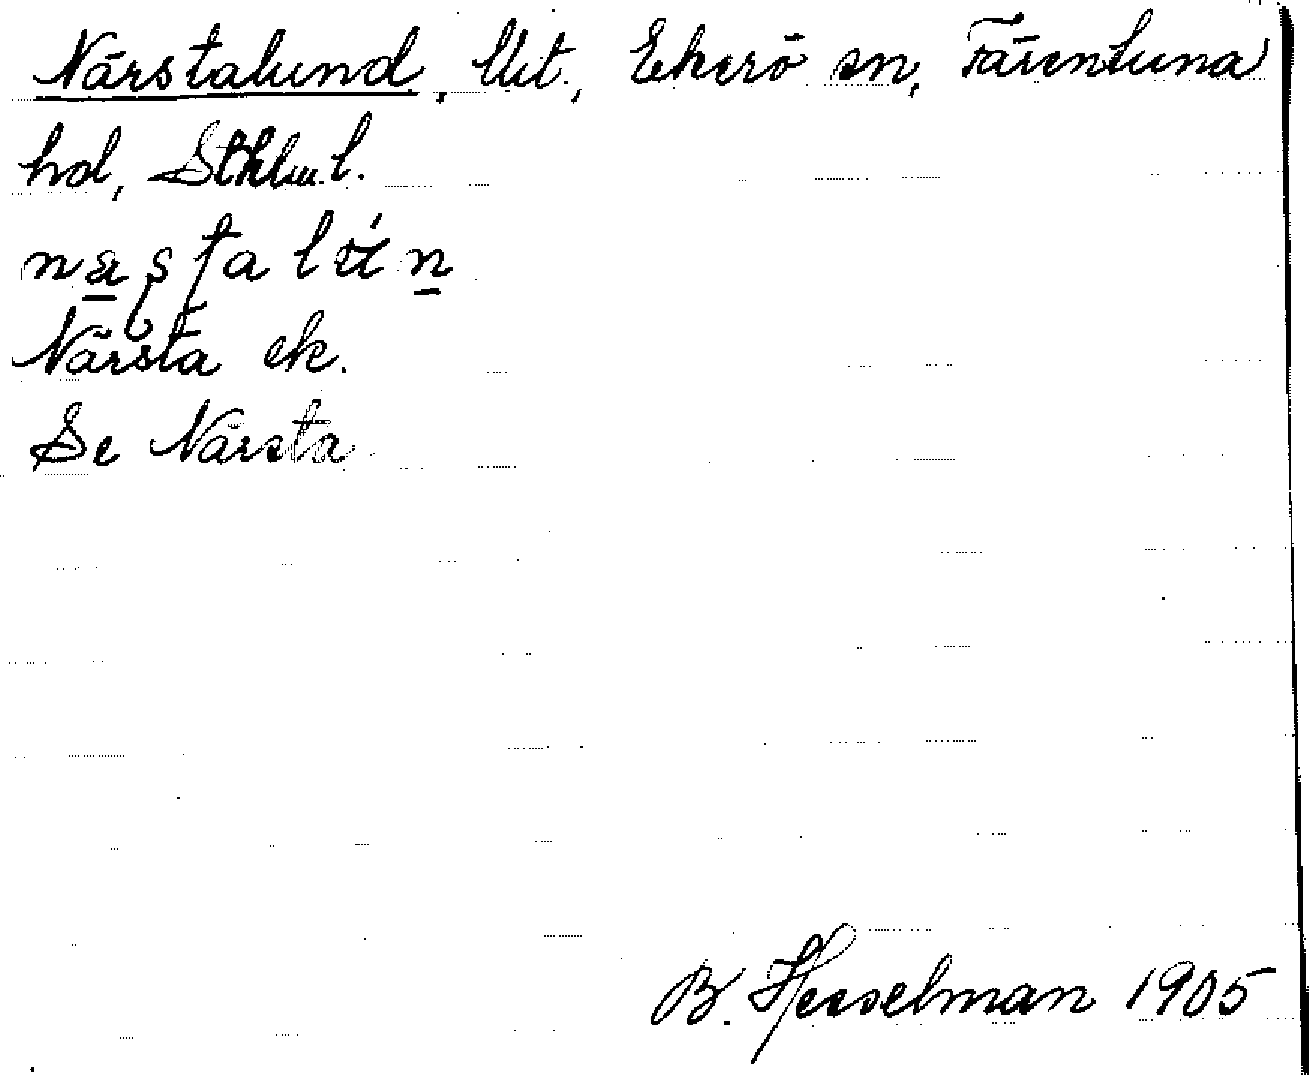 Närstalund, lht., Ekerö sn, Färentuna
hd, Sthlm. l.
Närsta ek.
Se Närsta
B. Hesselman 1905